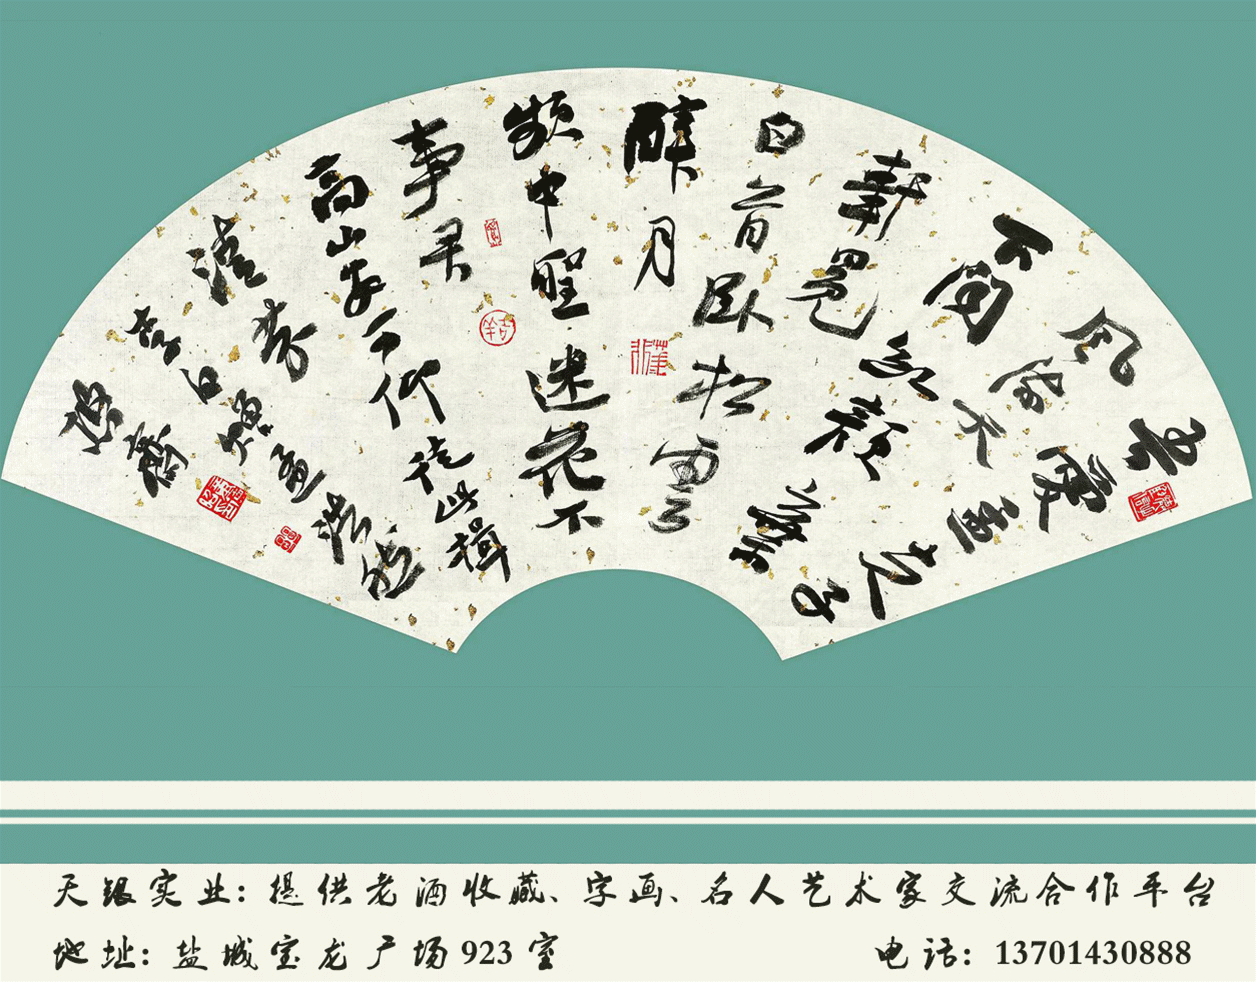 吾愛孟夫子
风流天
下闻红颜棄
軒冕
白首卧松雲
醉月
频中聖迷花不
事君
高山安可仰徒此揖
清芬
李白赠孟浩然
天银实业：提供老酒收藏、字画、名人艺术家交流合作平台
地址：盐城宝龙广场923室
电话：13701430888